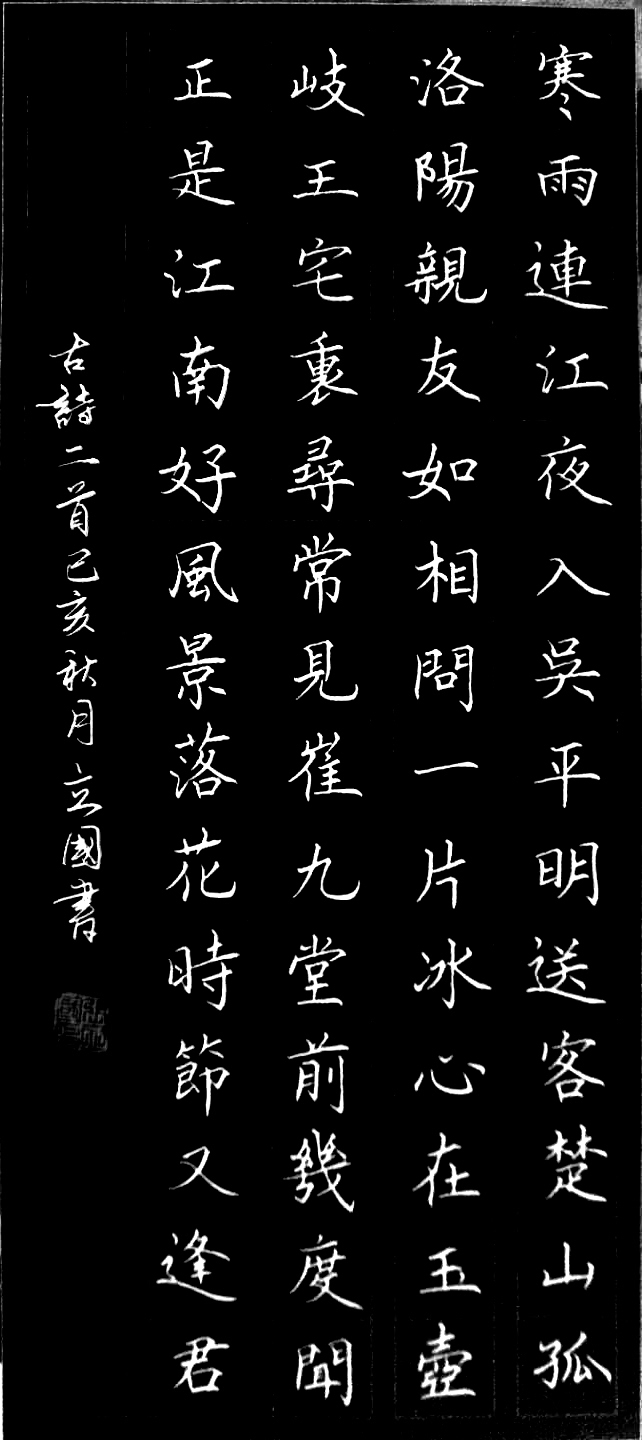 寒雨連江夜入吳平明送客楚山孤
洛陽親友如相問一片冰心在玉壺
岐王宅裏尋常見崔九堂前幾度聞
正是江南好風景落花時節又逢君
古詩二首己亥秋月立國書